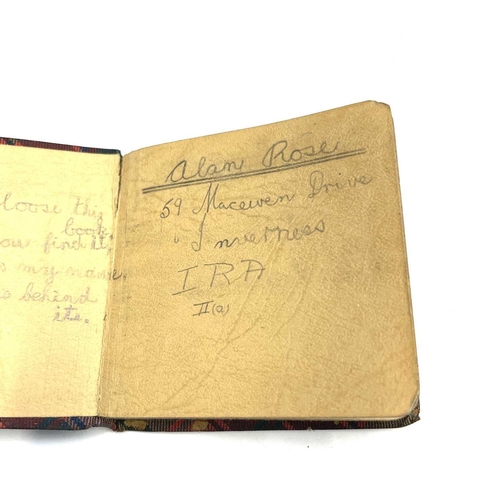 loose this
book
you find it,
s my name
s behind
its.
Alan Rose
59 Macewen Drive
Inverness
IRA
II(a)